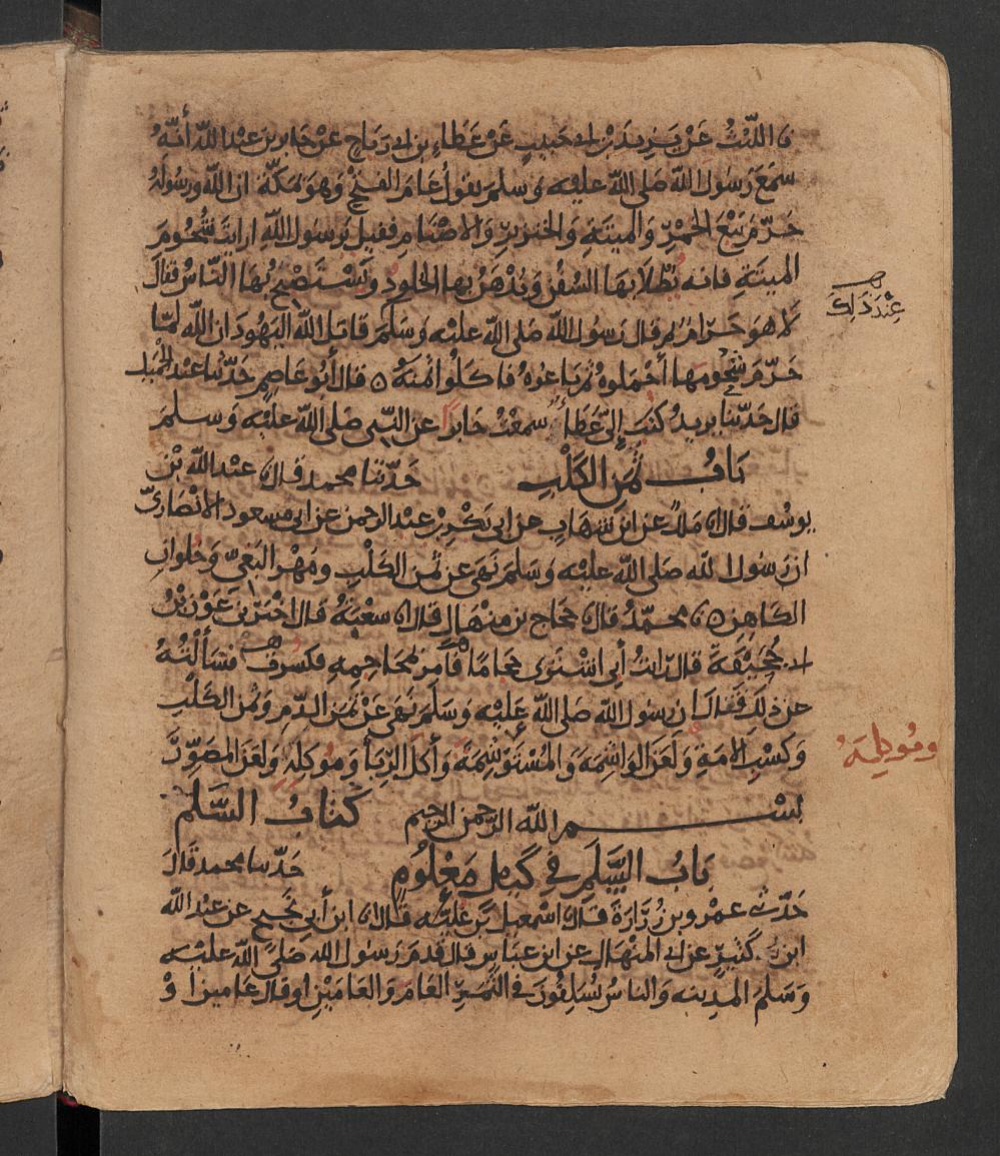 نا اللّيْثُ عَنْ يَزِيدَ بْنِ أبي حَبيبٍ عَنْ عَطَاءِ بن أبي رَبَاحٍ عَنْ جَابِرِ بن عَبْدِ اللّه أنَّهُ
سَمِعَ رَسُولَ اللّه صَلى اللّه عليْه وَسلمَ يقولُ عَامَ الفتحِ وَهوَ بمَكّةَ ان اللّه وَرسُولَهُ
حَرّمَ بَيْعَ الخَمْرِ وَالميتَةِ وَالخنزيرِ وَالاصْنَامِ فقيلَ يَرسُولَ اللّهِ ارايتَ شُحُومَ
الميتَةِ فانه يُطْلَا بهَا السُّفُن وَيُدْهَنُ بها الجُلودُ وَيَسْتَصْبحُ بُهَا النّاسُ فقالَ
لَا هوَ حَرَامٌ ثم قال رَسُولُ اللّه صَلى اللّه عليْه وَسَلّمَ قاتلَ اللّهُ اليَهُودَ ان اللّه لمّا
عِنْدَ ذَلِكَ
حَرّمَ شُحُومهَا أجْمَلوهُ ثم بَاعُوهُ فاكلُوا ثمنَهُ ٥ قال أبُو عَاصِمٍ حَدّثنَا عَبْد الحميد
قال حَدّثنَا يزيدُ كتبَ إلىَّ عَطَاءٌ سمعْتُ جَابرًا عن النَّبى صَلى اللّهُ عليْه وَسلمَ
بَابُ ثمن الكَلْبِ حَدّثنا محمد قال نا عبْد اللّه بْن
يوسُف قال انا مَلك عن ابن شهَابٍ عن ابي بَكْرِ بْن عبْد الرحمن عن ابي مسعود الانْصَارىّ
ان رَسُول اللّه صَلى اللّه عليْه وَسَلمَ نَهَى عن ثمن الكَلْبِ ومَهْر البَغِىّ وَحُلوانِ
الكاهن ٥ نا محمّدٌ قال نا حجاج بن منْهَال قال نا شعْبَةُ قال اخْبَرَنى عَوْن بْنُ
ابي جُحَيْفَةَ قال رَايتُ أبِى اشْتَرَى حَجامًا فأمر بمحَاجِمِهِ فكسرت فسَألتُهُ
عن ذلِكَ فقالَ ان رسُول اللّه صَلى اللّه عليْه وَسَلَمَ نَهَى عَنْ ثمَن الدّمِ وَثمن الكَلْبِ
وَكَسْبِ الأمَةِ وَلعَنَ الوَاشِمَةَ وَالمُسْتَوْشِمَةَ وَأكلَ الرّبَا وَمُوكلِهِ وَلعَنَ المصَوِّرَ
ومُوكِلِهِ
بسْم اللّه الرّحمن الرحيم كتابُ السَّلَمِ
بَابُ السَّلَمِ فِى كَيلٍ مَعْلُومٍ حَدّثنا محمد قالَ
حَدّثني عمْرو بن زُرَارَةَ قال انا اسْمعيل بن عُليّه قال انا ابن أبي نجيح عن عبْد اللّه
ابن كَثيرٍ عن ابي المنْهَال عن ابن عباسٍ قال قدمَ رَسُول اللّه صَلى اللّه عليْه
وَسَلمَ المدينه وَالناسُ يُسْلِفُونَ في الثّمَرِ العَامَ وَالعَامَيْنِ او قال عَامين اوْ